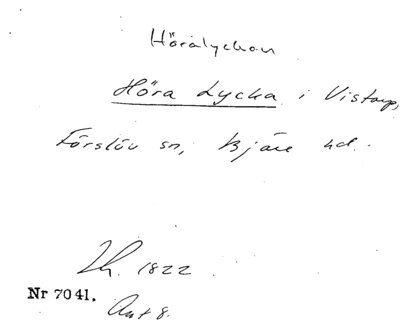 Höralyckan
Höra Lycka i Vistorp,
Förslöv sn, Bjäre hd.
Lh. 1822
Nr 7041.
Ant 8.